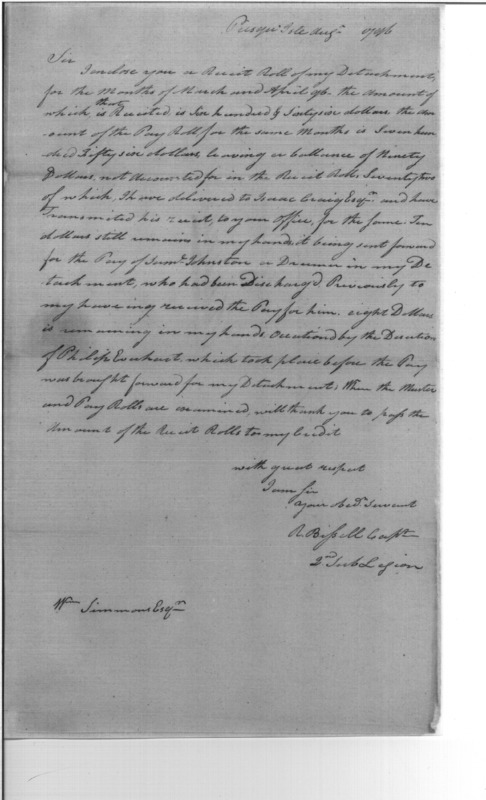 Presqu Isle Augt 1796
Sir
I enclose you a Receit Roll of my Detachment,
for the Months of March and April 96. the Amount of
which, that is Receited is Six hundred & Sixty six dollars the Am-
ount of the Pay Roll for the same Months is Seven hun-
dred Fifty six dollars, leaving a ballance of Ninety
Dollars, not Accounted for in the Receit Rolls, Seventy two
of which, I have delivered to Isaac Craig Esqr. and have
Transmitted his receit, to your Office, for the same. Ten
dollars still remains in my hands it being sent forward
for the Pay of Saml. Johnston a Drummer in my De
tachment, who had been Discharg'd Previously to
my haveing received the Pay for him. eight Dollars
is remaining in my hands Occationd by the Desertion
of Philip Everhart, which took place before the Pay
was brought forward for my Detachment; When the Muster
and Pay Rolls are examined, will thank you to pass the
Amount of the Receit Rolls to my Credit
with great respect
I am Sir
your bed. Servant
R Bissell Capt
2d Sub Legion
Wm Simmons Esqr